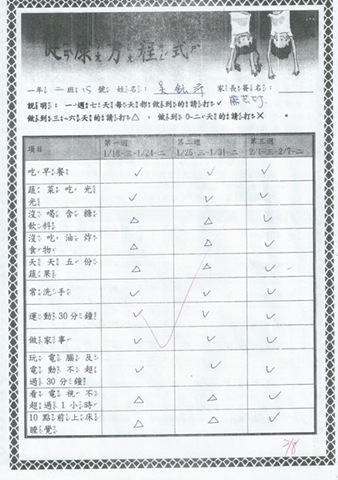 健康方程式
一年二班15號 姓名： 家長簽名：
說明：一週七天每天都做到的請打✓
做到三~六天的請打△，做到0-二天的請打✕
項目 第一週 1/18-三-1/24-二 第二週 1/25-三-1/31-二 第三週 2/1-三-2/7-二
吃早餐 ✓ ✓ ✓
蔬菜吃光光 ✓ ✓ ✓
沒喝含糖飲料 △ △ ✓
沒吃油炸食物 △ △ ✓
天天五份蔬果 △ △ ✓
常洗手 ✓ ✓ ✓
運動30分鐘 ✓ ✓ ✓
做家事 ✓ ✓ ✓
玩電腦及電動不超過30分鐘 ✓ ✓ ✓
看電視不超過1小時 △ △ ✓
10點前上床睡覺 △ △ ✓
2/8